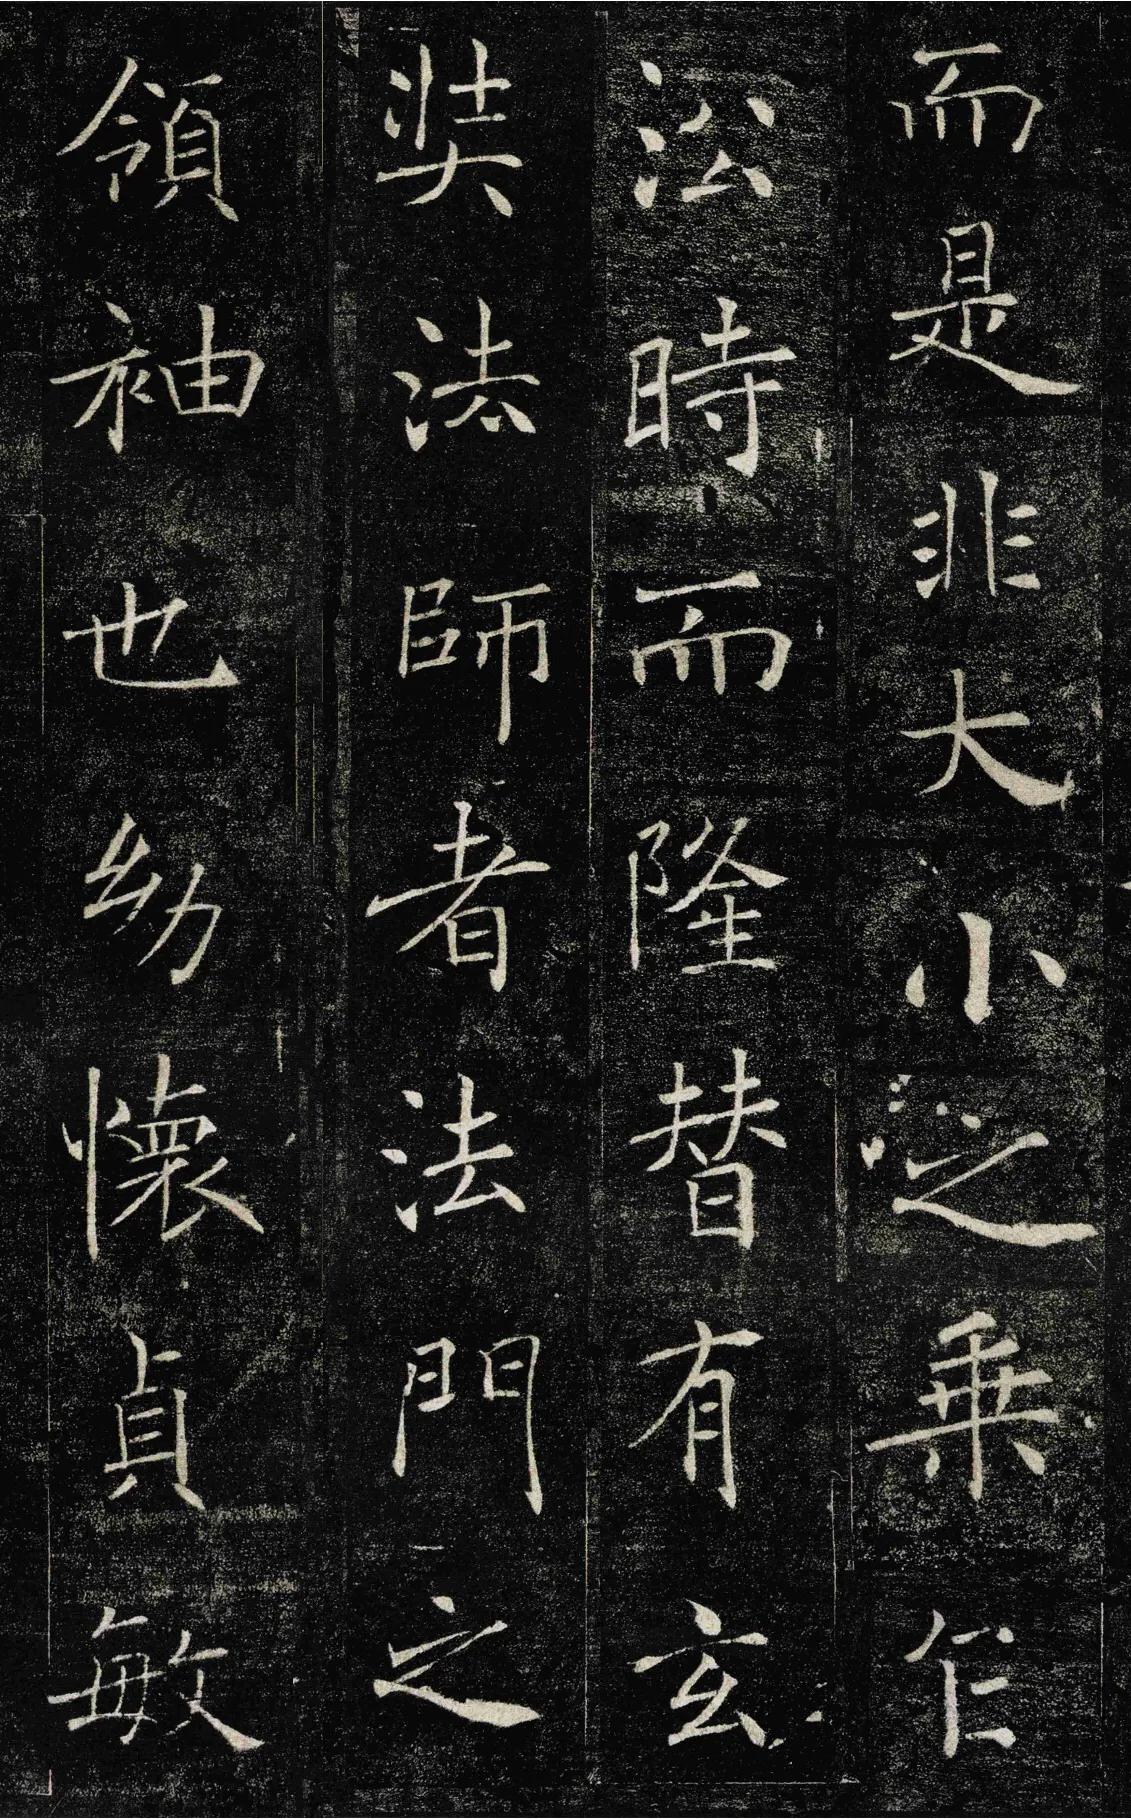 而是非大小之乗乍
㳂時而隆替有玄
奘法師者法門之
領袖也幼懐貞敏